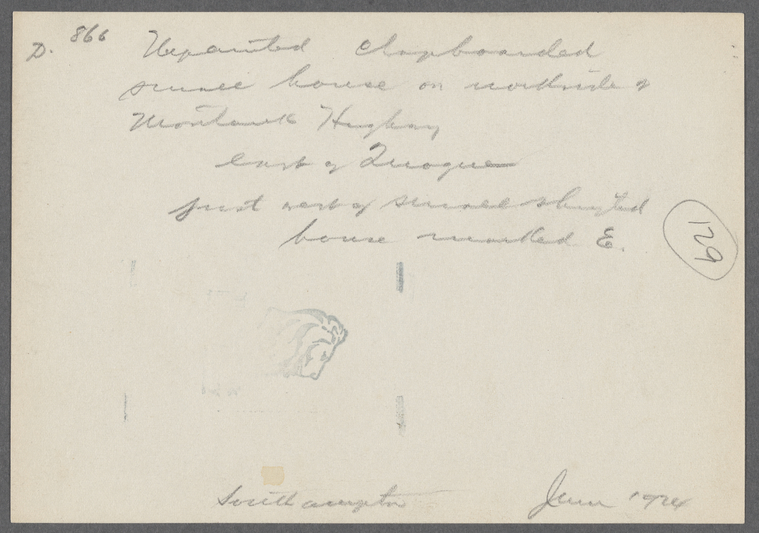 D. 866 Unpainted clapboarded
small house on northside of
Montauk Highway
East of Quogue
just west of small shingled
house marked E.
129
Southampton
June 1924